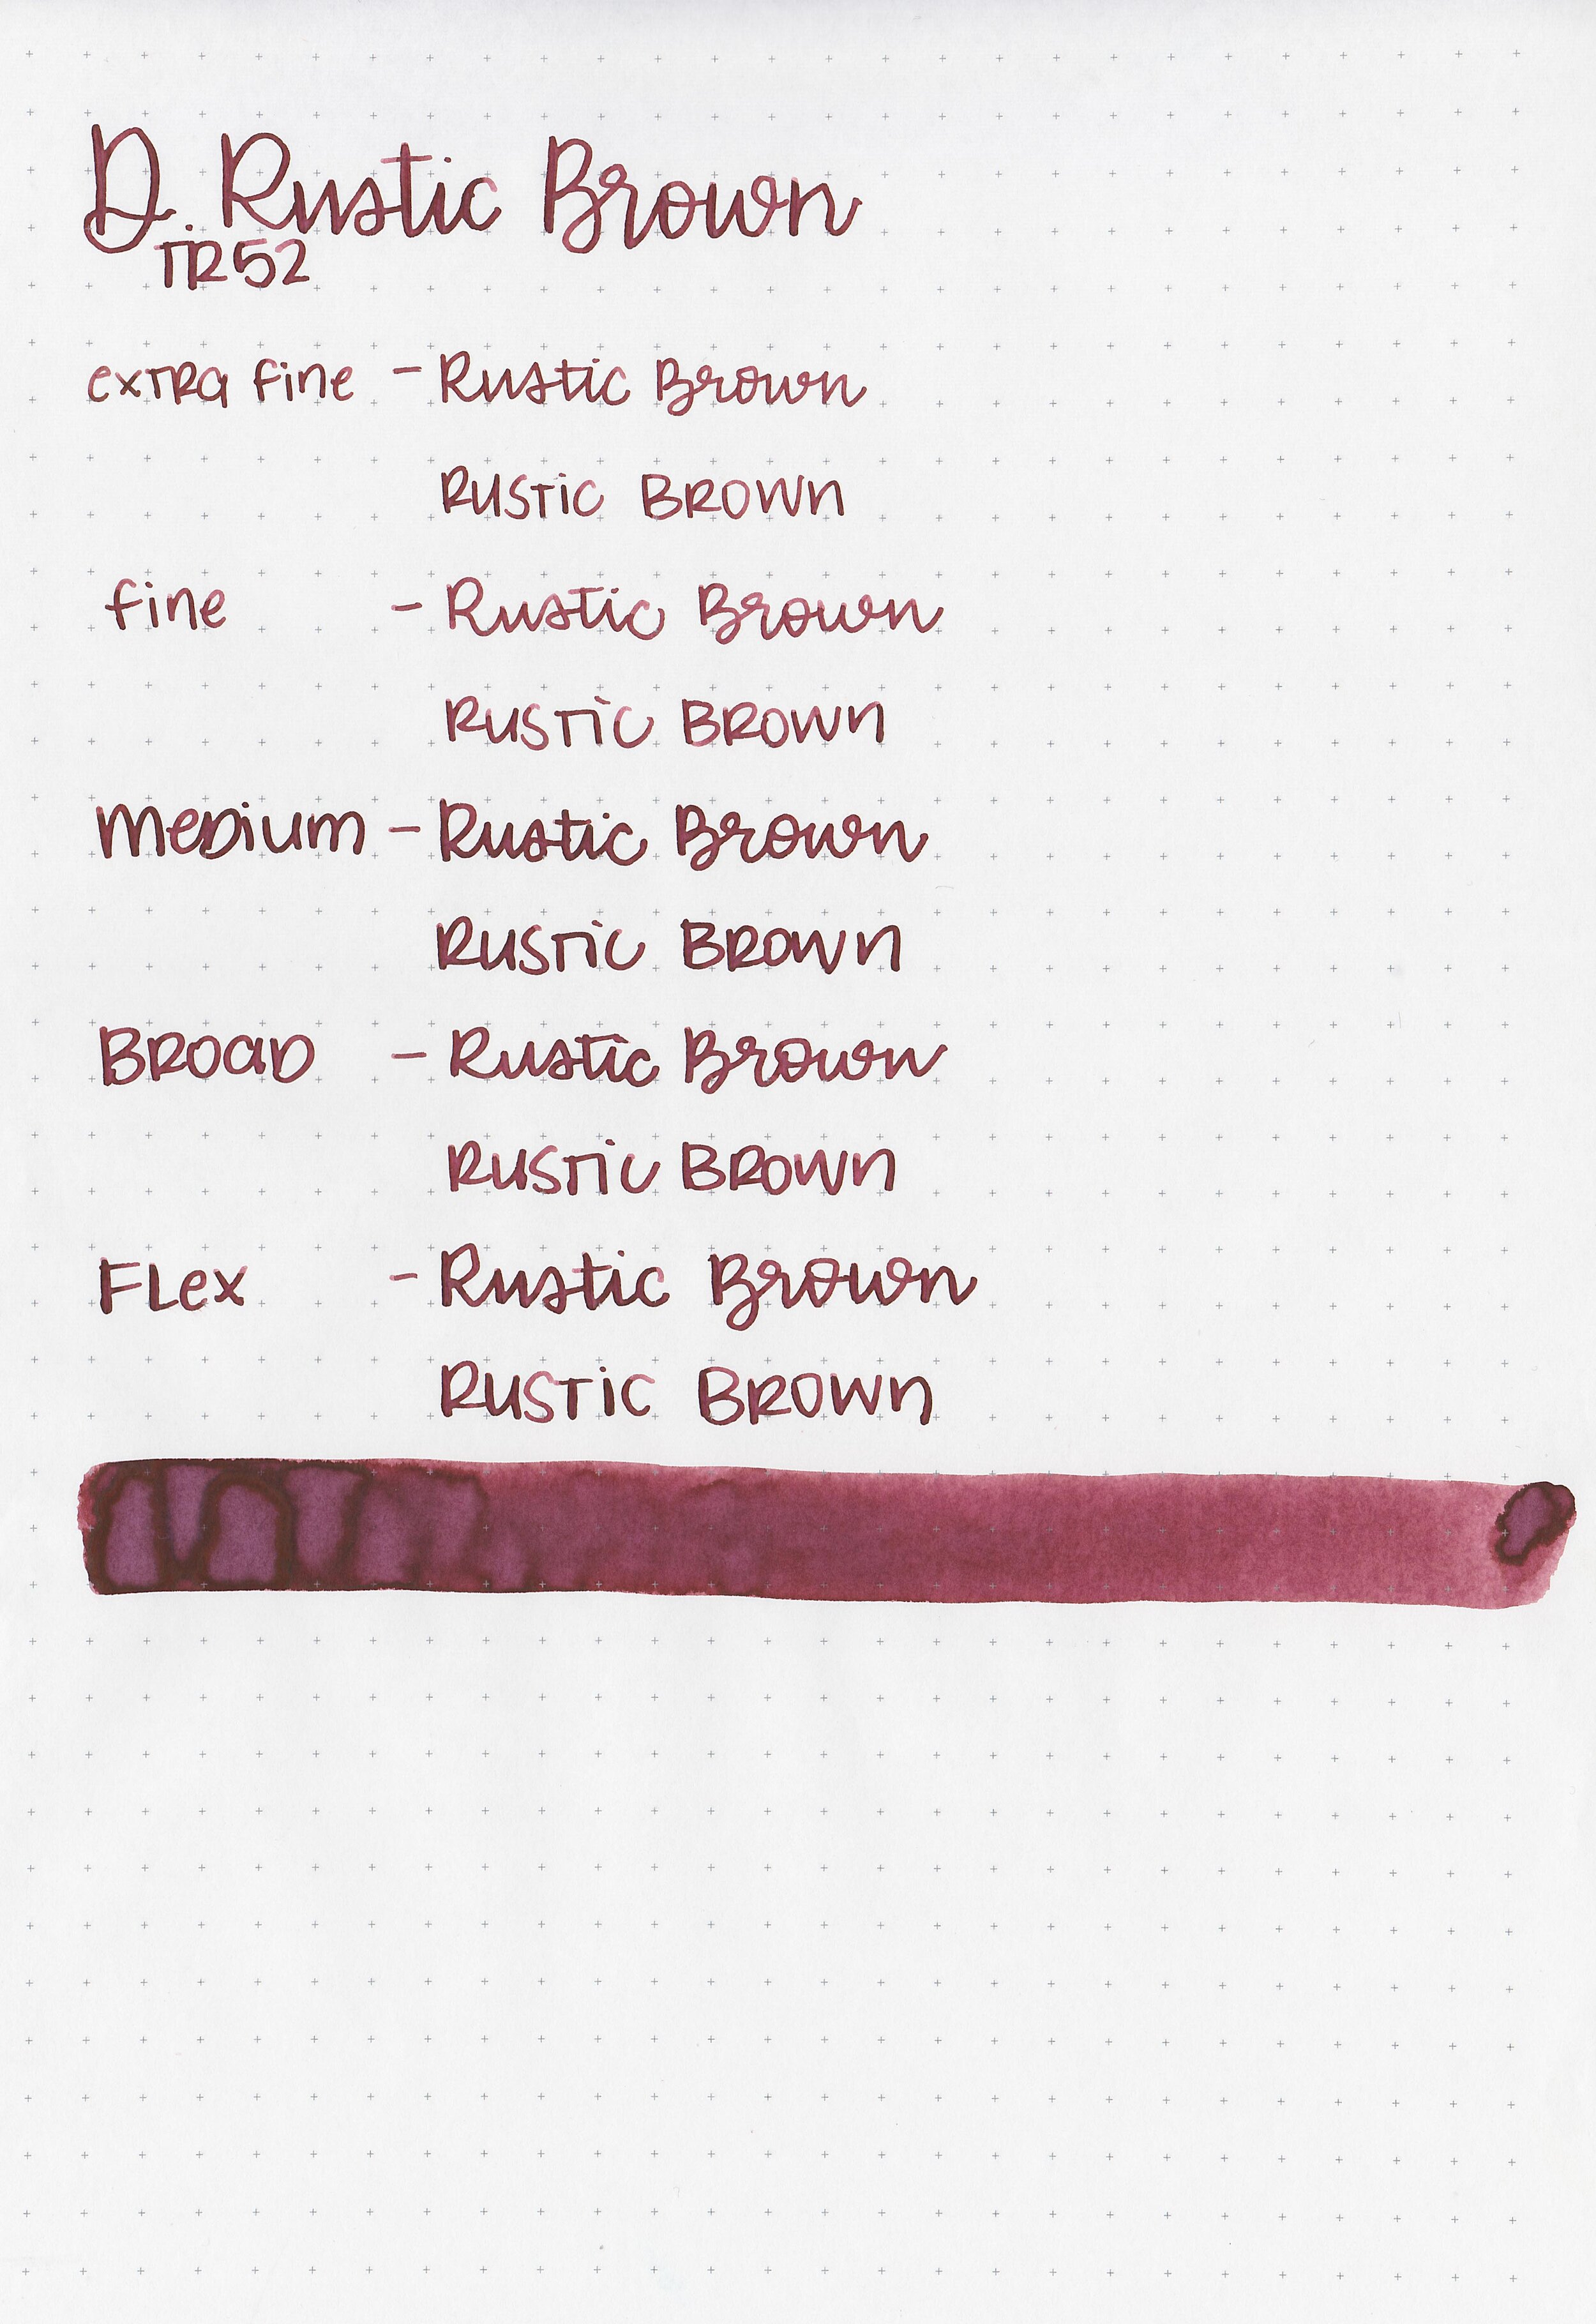 D. Rustic Brown
TR52
extra fine - Rustic Brown
RUSTIC BROWN
fine - Rustic Brown
RUSTIC BROWN
Medium - Rustic Brown
RUSTIC BROWN
BROAD - Rustic Brown
RUSTIC BROWN
FLex - Rustic Brown
RUSTIC BROWN